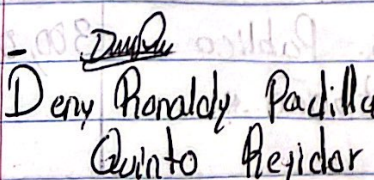 Deny Ronaldy Padilla
Quinto Regidor